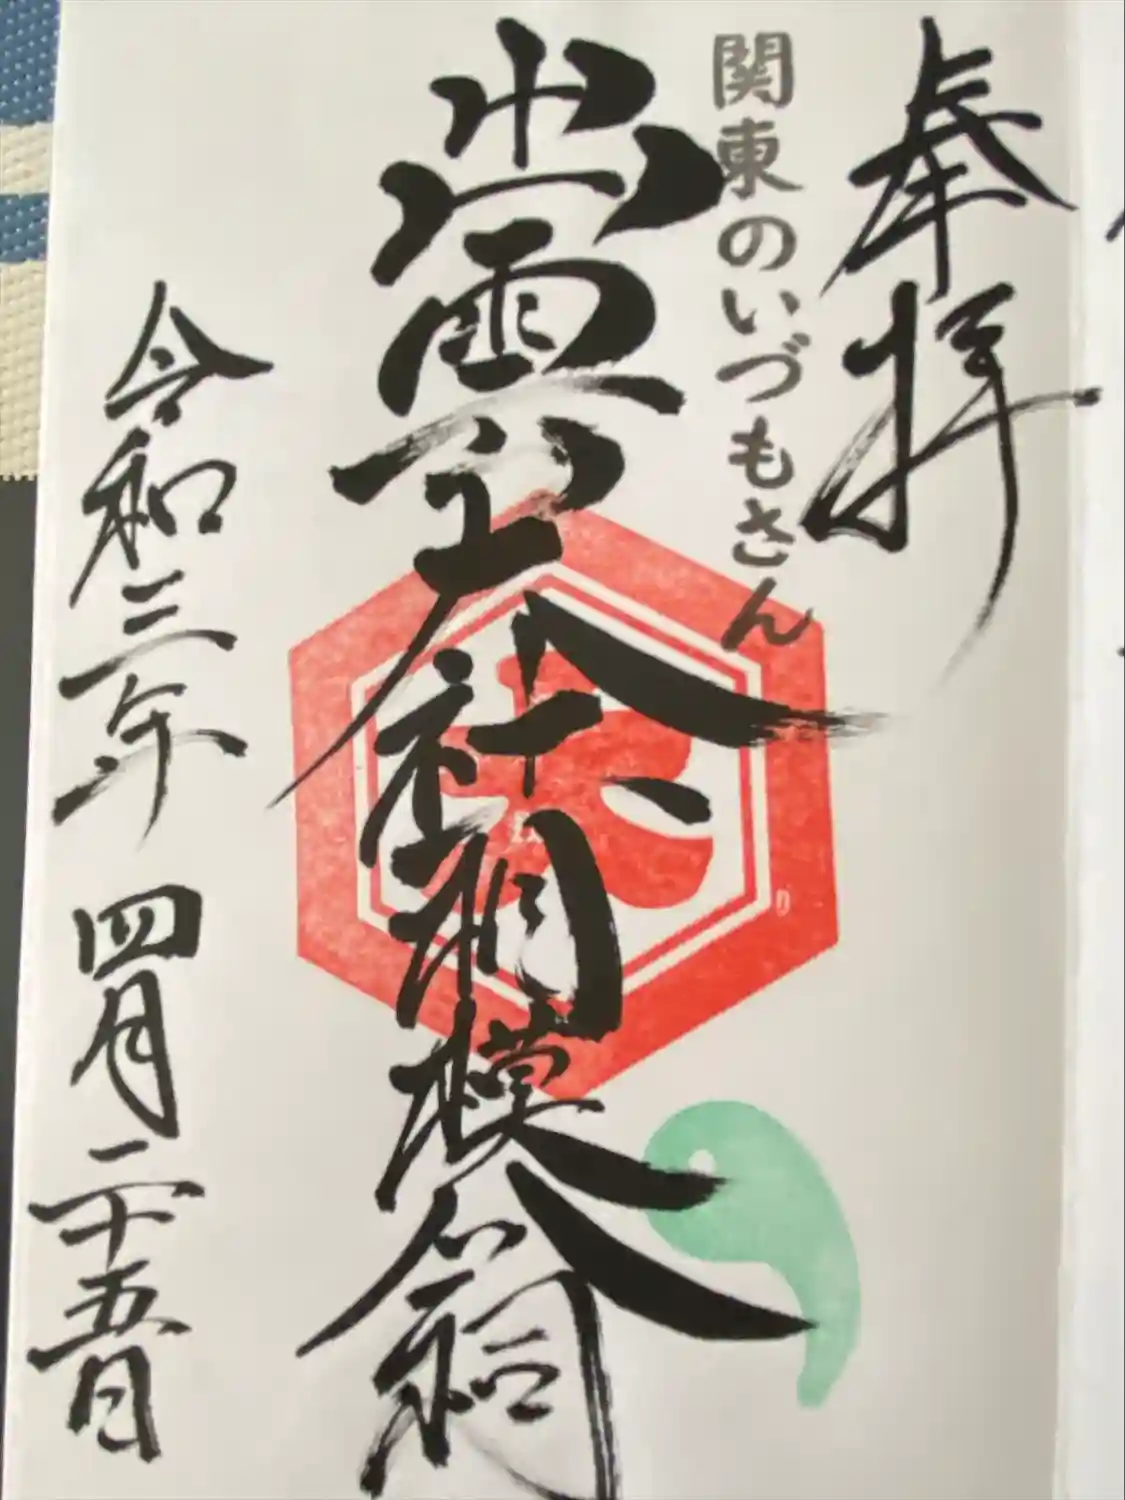 奉拝
関東のいづもさん
出雲大社相模分祠
令和三年四月二十五日